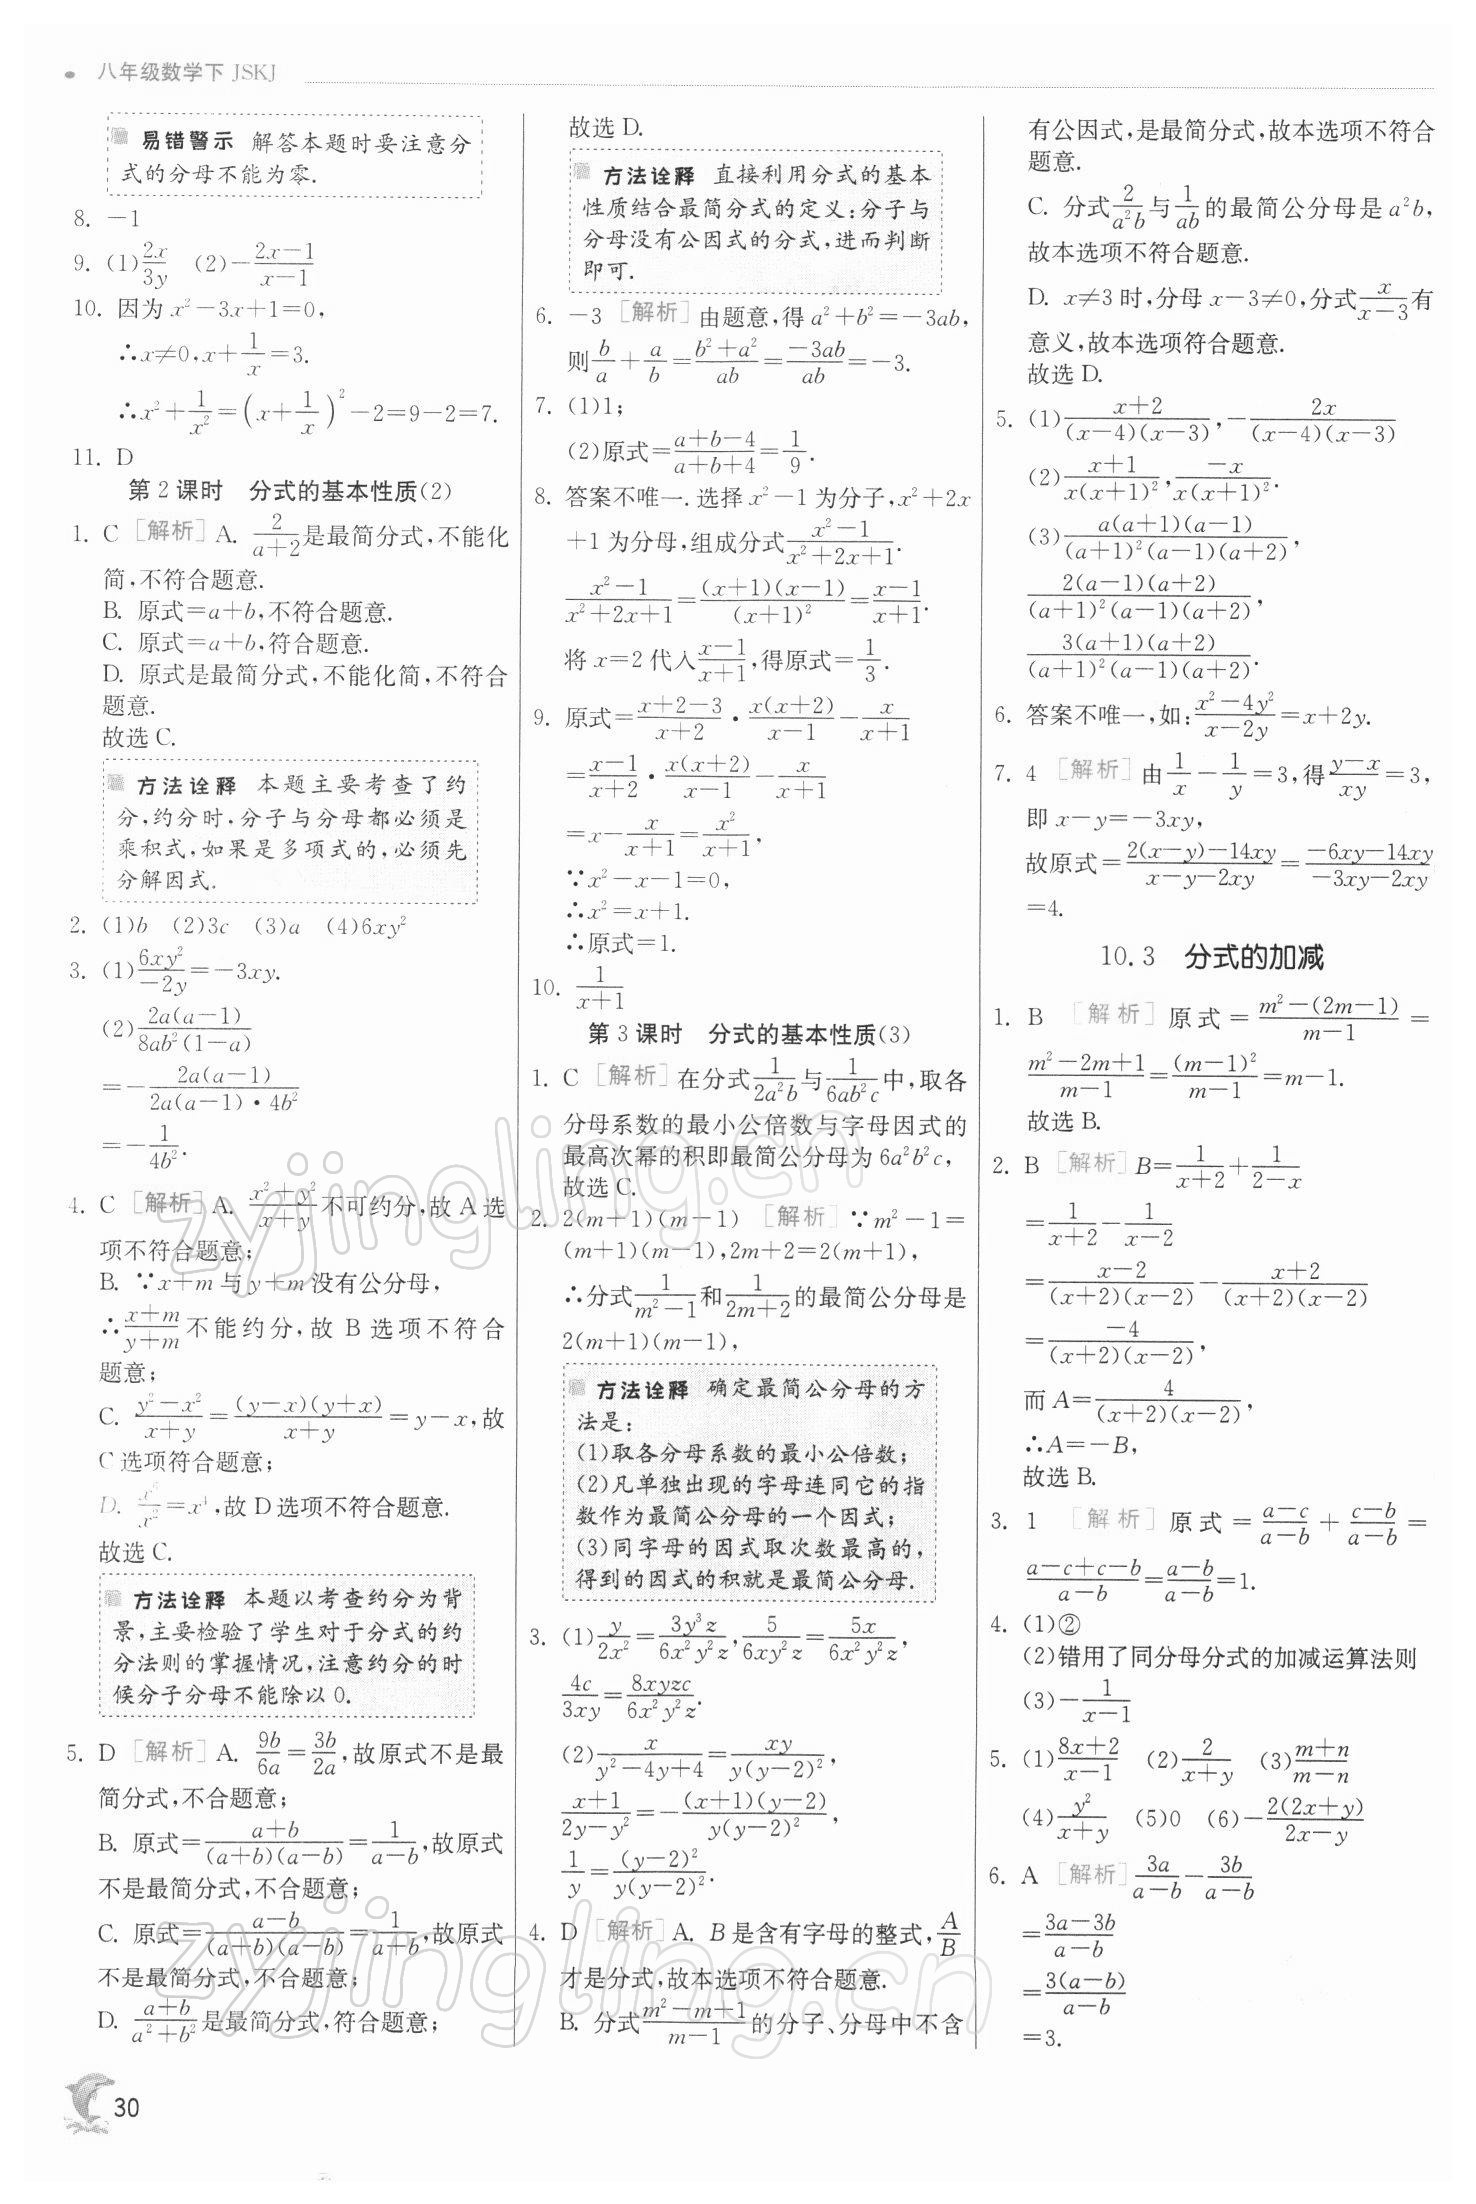 八年级数学下 JSKJ
易错警示 解答本题时要注意分
式的分母不能为零.
8. －1
9. (1)2x/3y (2)－(2x－1)/(x－1)
10. 因为 x²－3x＋1＝0，
∴x≠0，x＋1/x＝3.
∴x²＋1/x²＝(x＋1/x)²－2＝9－2＝7.
11. D
第 2 课时 分式的基本性质(2)
1. C [解析] A. 2/(a＋2)是最简分式，不能化
简，不符合题意.
B. 原式＝a＋b，不符合题意.
C. 原式＝a＋b，符合题意.
D. 原式是最简分式，不能化简，不符合
题意.
故选 C.
方法诠释 本题主要考查了约
分，约分时，分子与分母都必须是
乘积式，如果是多项式的，必须先
分解因式.
2. (1)b (2)3c (3)a (4)6xy²
3. (1)6xy²/(－2y)＝－3xy.
(2)2a(a－1)/8ab²(1－a)
＝－2a(a－1)/(2a(a－1)·4b²)
＝－1/4b².
4. C [解析] A. (x²＋y²)/(x＋y)不可约分，故 A 选
项不符合题意；
B. ∵x＋m 与 y＋m 没有公分母，
∴(x＋m)/(y＋m)不能约分，故 B 选项不符合
题意；
C. (y²－x²)/(x＋y)＝(y－x)(y＋x)/(x＋y)＝y－x，故
C 选项符合题意；
D. x⁶/x²＝x⁴，故 D 选项不符合题意.
故选 C.
方法诠释 本题以考查约分为背
景，主要检验了学生对于分式的约
分法则的掌握情况，注意约分的时
候分子分母不能除以 0.
5. D [解析] A. 9b/6a＝3b/2a，故原式不是最
简分式，不合题意；
B. 原式＝(a＋b)/((a＋b)(a－b))＝1/(a－b)，故原式
不是最简分式，不合题意；
C. 原式＝(a－b)/((a＋b)(a－b))＝1/(a＋b)，故原式
不是最简分式，不合题意；
D. (a＋b)/(a²＋b²)是最简分式，符合题意；
故选 D.
方法诠释 直接利用分式的基本
性质结合最简分式的定义：分子与
分母没有公因式的分式，进而判断
即可.
6. －3 [解析] 由题意，得 a²＋b²＝－3ab，
则b/a＋a/b＝(b²＋a²)/ab＝－3ab/ab＝－3.
7. (1)1；
(2)原式＝(a＋b－4)/(a＋b＋4)＝1/9.
8. 答案不唯一. 选择 x²－1 为分子，x²＋2x
＋1 为分母，组成分式(x²－1)/(x²＋2x＋1).
(x²－1)/(x²＋2x＋1)＝(x＋1)(x－1)/(x＋1)²＝(x－1)/(x＋1).
将 x＝2 代入(x－1)/(x＋1)，得原式＝1/3.
9. 原式＝(x＋2－3)/(x＋2)·x(x＋2)/(x－1)－x/(x＋1)
＝(x－1)/(x＋2)·x(x＋2)/(x－1)－x/(x＋1)
＝x－x/(x＋1)＝x²/(x＋1)，
∵x²－x－1＝0，
∴x²＝x＋1.
∴原式＝1.
10. 1/(x＋1)
第 3 课时 分式的基本性质(3)
1. C [解析] 在分式1/2a²b与1/6ab²c中，取各
分母系数的最小公倍数与字母因式的
最高次幂的积即最简公分母为 6a²b²c，
故选 C.
2. 2(m＋1)(m－1) [解析] ∵m²－1＝
(m＋1)(m－1)，2m＋2＝2(m＋1)，
∴分式1/(m²－1)和1/(2m＋2)的最简公分母是
2(m＋1)(m－1)，
方法诠释 确定最简公分母的方
法是：
(1)取各分母系数的最小公倍数；
(2)凡单独出现的字母连同它的指
数作为最简公分母的一个因式；
(3)同字母的因式取次数最高的，
得到的因式的积就是最简公分母.
3. (1)y/2x²＝3y³z/6x²y²z，5/6xy²z＝5x/6x²y²z，
4c/3xy＝8xyzc/6x²y²z.
(2)x/(y²－4y＋4)＝xy/y(y－2)²，
(x＋1)/(2y－y²)＝－(x＋1)(y－2)/y(y－2)²，
1/y＝(y－2)²/y(y－2)².
4. D [解析] A. B 是含有字母的整式，A/B
才是分式，故本选项不符合题意.
B. 分式(m²－m＋1)/(m－1)的分子、分母中不含
有公因式，是最简分式，故本选项不符合
题意.
C. 分式2/a²b与1/ab的最简公分母是 a²b，
故本选项不符合题意.
D. x≠3 时，分母 x－3≠0，分式x/(x－3)有
意义，故本选项符合题意.
故选 D.
5. (1)(x＋2)/((x－4)(x－3))，－2x/((x－4)(x－3))
(2)(x＋1)/x(x＋1)²，－x/x(x＋1)².
(3)a(a＋1)(a－1)/((a＋1)²(a－1)(a＋2))，
2(a－1)(a＋2)/((a＋1)²(a－1)(a＋2))，
3(a＋1)(a＋2)/((a＋1)²(a－1)(a＋2)).
6. 答案不唯一，如：(x²－4y²)/(x－2y)＝x＋2y.
7. 4 [解析] 由1/x－1/y＝3，得(y－x)/xy＝3，
即 x－y＝－3xy，
故原式＝(2(x－y)－14xy)/(x－y－2xy)＝(－6xy－14xy)/(－3xy－2xy)
＝4.
10.3 分式的加减
1. B [解析] 原式＝(m²－(2m－1))/(m－1)＝
(m²－2m＋1)/(m－1)＝(m－1)²/(m－1)＝m－1.
故选 B.
2. B [解析] B＝1/(x＋2)＋1/(2－x)
＝1/(x＋2)－1/(x－2)
＝(x－2)/((x＋2)(x－2))－(x＋2)/((x＋2)(x－2))
＝－4/((x＋2)(x－2))，
而 A＝4/((x＋2)(x－2))，
∴A＝－B，
故选 B.
3. 1 [解析] 原式＝(a－c)/(a－b)＋(c－b)/(a－b)＝
(a－c＋c－b)/(a－b)＝(a－b)/(a－b)＝1.
4. (1)②
(2)错用了同分母分式的加减运算法则
(3)－1/(x－1)
5. (1)(8x＋2)/(x－1) (2)2/(x＋y) (3)(m＋n)/(m－n)
(4)y²/(x＋y) (5)0 (6)－2(2x＋y)/(2x－y)
6. A [解析] 3a/(a－b)－3b/(a－b)
＝(3a－3b)/(a－b)
＝3(a－b)/(a－b)
＝3.
30
zyjingling.cn
zyjingling.cn